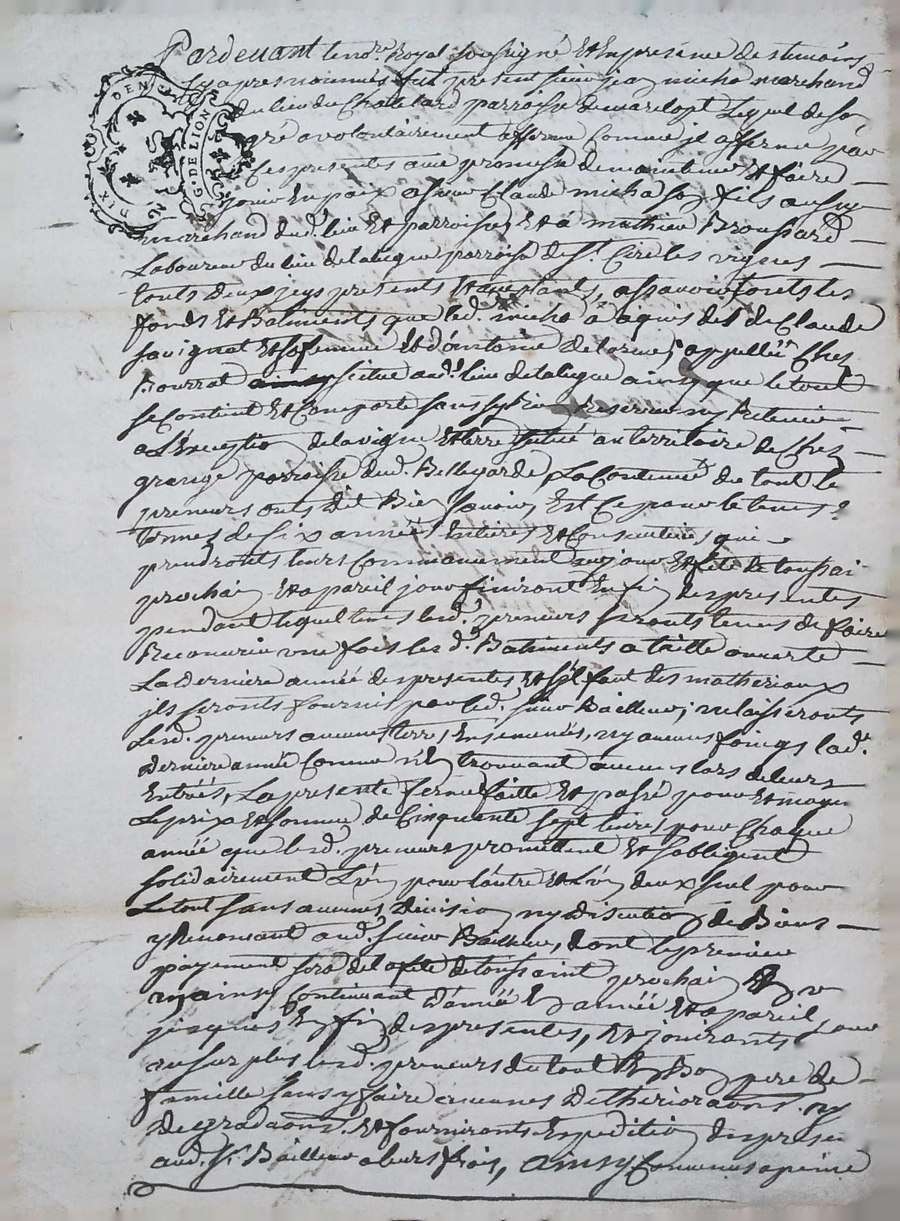 DIX DEN
G. DE LION
Pardevant le no.re Royal soussigné Et En presence des temoins
cy apres nommés fut present sieur jean micha marchand
du lieu du Chattelard parroisse de marclopt Lequel de son
gré a volontairement afferme Comme jl afferme par
Ces presentes avec promesse de maintenir Et faire
jouir En paix a sieur Claude micha son fils aussy
marchand dud. lieu Et parroisse, Et à mathieu Broussard
Laboureur du lieu de parroisse de S.t Cir les vignes
touts deux jcy presents Et acceptants, assavoir touts les
fonds Et Batiments que led. micha a aquis de Claude
savignat Et sa femme Et d'antoine delorme, appellés Chez
Bourrat scitué aud. lieu de ainsy que le tout
se Contient Et Comporte sans sy Rien Reserver ny Retenir
a L'Exception de la vigne Et terre scitué au territoire de Chez
grange parroisse dud. Bellegarde, La Contenue du tout le
preneurs onts dit Bien scavoir, Est Ce pour le tems &
termes de six années Entieres Et Consecutives qui
prendronts leurs Commancement au jour Et fete de toussaint
prochain Et a pareil jour finiront En fin des presentes
pendant lequel tems lesd. preneurs seronts tenus de faire
Recouvrir une fois lesd. Batiments a taille ouverte
La derniere année des presentes, Et s'jl faut des matheriaux
jls seronts fournis par led. sieur Bailleur; ne laisseronts
Lesd. preneurs aucunes terres Ensemencées, ny aucuns foings lad.
derniere année Comme n'En trouvant aucuns lors de leurs
Entrées, La presente ferme faitte Et passé pour Et moyen
Le prix Et somme de Cinquante sept livres pour Chaque
année que lesd. preneurs promettent Et s'obligent
solidairement L'un pour l'autre Et L'un deux seul pour
Le tout sans aucunes Division ny discution de Biens
y Renoncant aud. sieur Bailleur, dont le premier
payement sera de la fete de toussaint prochain En un
an ainsy Continuant d'année En année Et a pareil jour
jusques En fin des presentes, Et jouironts
au surplus lesd. preneurs du tout En Bon pere de
famille sans y faire aucunes detheriorations ny
degradaons. Et fournironts Expedition des presentes
aud. S.r Bailleur a leurs frais, ainsy Convenus a peine